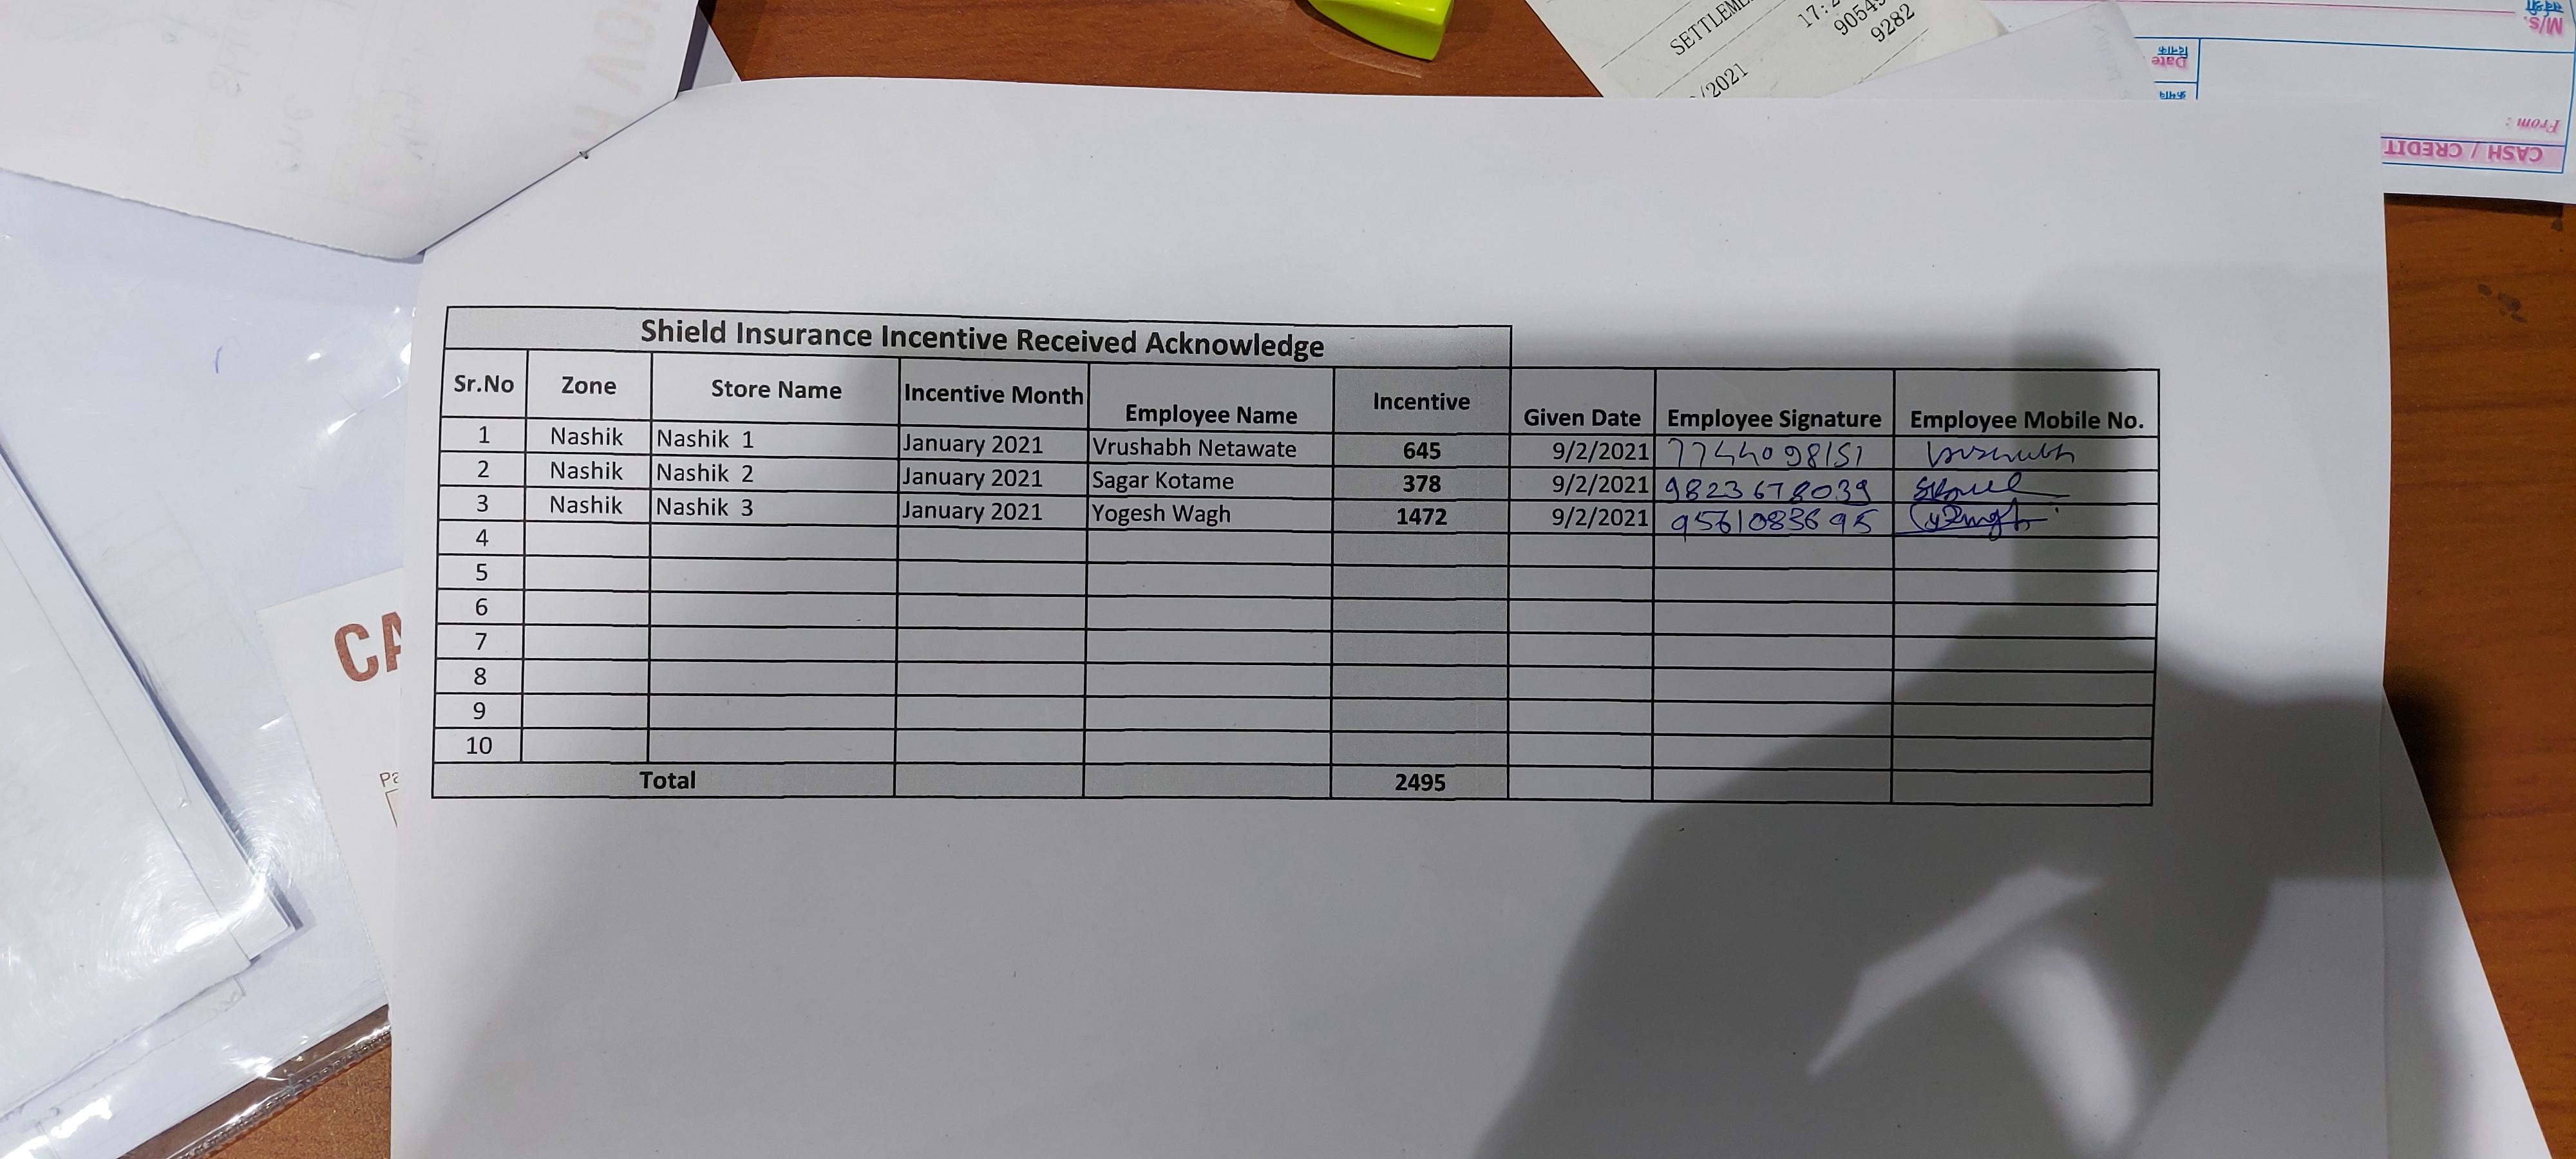 Shield Insurance Incentive Received Acknowledge
Sr.No Zone Store Name Incentive Month Employee Name Incentive Given Date Employee Signature Employee Mobile No.
1 Nashik Nashik 1 January 2021 Vrushabh Netawate 645 9/2/2021
2 Nashik Nashik 2 January 2021 Sagar Kotame 378 9/2/2021 9823678039
3 Nashik Nashik 3 January 2021 Yogesh Wagh 1472 9/2/2021 9561083695
4
5
6
7
8
9
10
Total 2495
CA
Pa
/2021
9282
Date
CASH / CREDIT
From :
M/s.